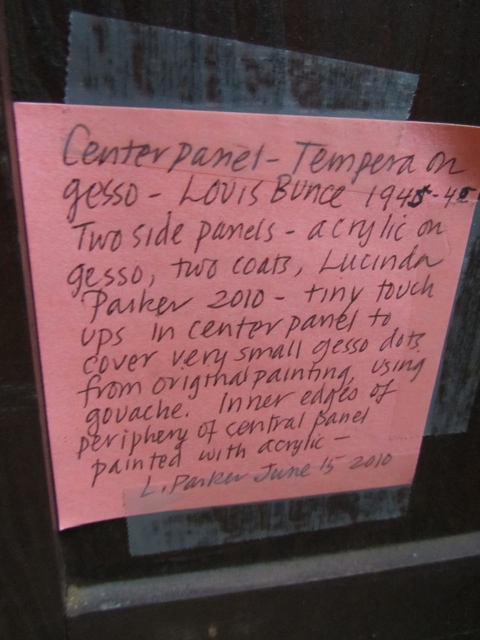 Center panel - Tempera on
gesso - Louis Bunce 1945-48
Two side panels - acrylic on
gesso, two coats, Lucinda
Parker 2010 - tiny touch
ups in center panel to
cover very small gesso dots
from original painting, using
gouache. Inner edges of
periphery of central panel
painted with acrylic -
L. Parker June 15 2010